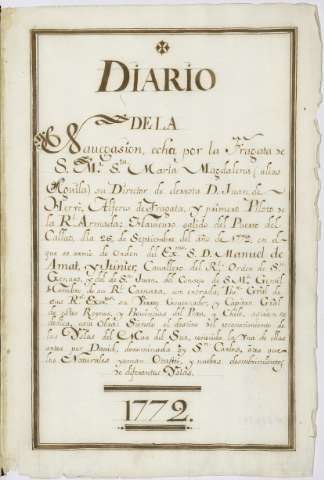 DIARIO
DE LA
Navegasion, echa por la Fragata de
S. M. Sta. María Magdalena (alias
Aguila) su Director de derrota D. Juan de
Hervé Alferes de Fragata, y primero Piloto de
la Rl. Armada: Haviendo salido del Puerto del
Callao, dia 26 de Septiembre del año de 1772, en el
que se envio de Orden del Exo. S. D. Manuel de
Amat, y Junier, Cavallero del Rl. Orden de Sn.
Genaro, y del de Sn. Juan, del Consejo de S. M. Gentil
Hombre de su Rl. Camara, con entrada, Thte. Gral. de
sus Rs. Virrey Governador, y Capitan Gral.
de estos Reynos, y Provincias del Peru, y Chile,
esta Obra: Siendo el destino del reconocimiento de
las Yslas del Mar del Sur, la Una de ellas
antes por David, denominada Sn. Carlos, otra que
los Naturales llaman Otaheti, y nuebos descubrimientos
de diferentes Yslas.
1772.